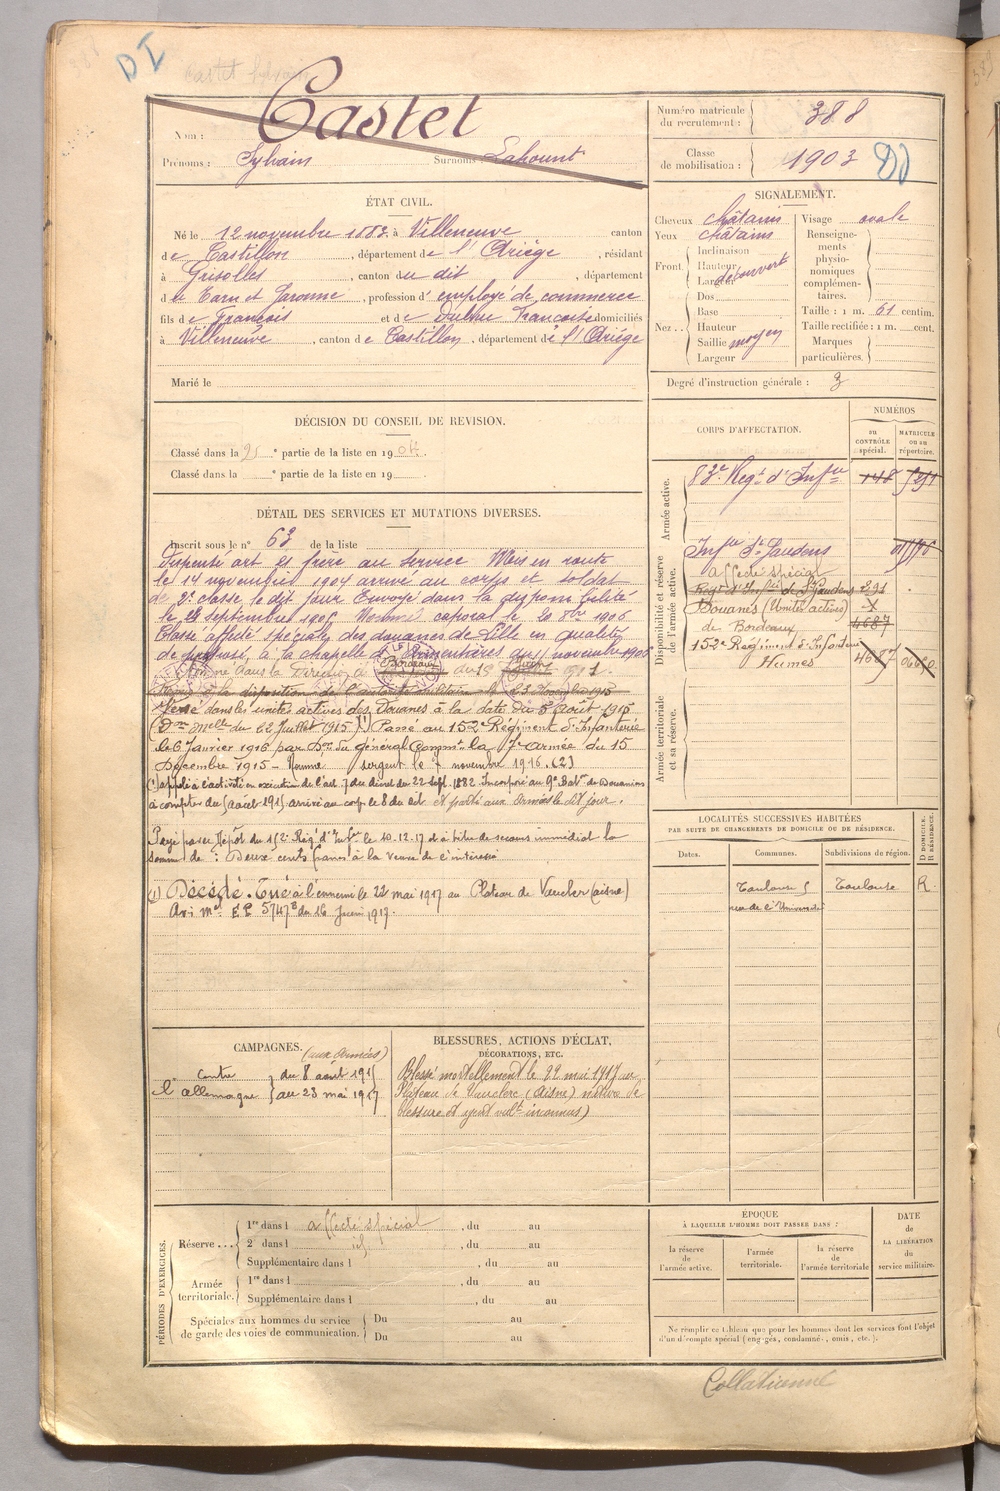 DI
Castet Sylvain
Nom : Castet
Prénoms : Sylvain Surnoms : Lahount
Numéro matricule du recrutement : 388
Classe de mobilisation : 1903
ÉTAT CIVIL.
Né le 12 novembre 1883 à Villeneuve canton
de Castillon, département de l'Ariège, résidant
à Grisolles, canton du dit, département
de Tarn et Garonne, profession d'employé de commerce
fils de François et de Françoise domiciliés
à Villeneuve, canton de Castillon, département de l'Ariège
Marié le
SIGNALEMENT.
Cheveux châtains
Yeux châtains
Front Inclinaison
Hauteur découvert
Largeur
Nez Dos
Base
Hauteur
Saillie moyen
Largeur
Visage ovale
Renseignements physionomiques complémentaires.
Taille : 1 m. 61 centim.
Taille rectifiée : 1 m. cent.
Marques particulières.
Degré d'instruction générale : 3
DÉCISION DU CONSEIL DE REVISION.
Classé dans la 1e partie de la liste en 1904.
Classé dans la e partie de la liste en 19
CORPS D'AFFECTATION.
NUMÉROS
au CONTRÔLE spécial.
MATRICULE ou au répertoire.
Armée active.
83e Regt d'Infie 148
Disponibilité et réserve de l'armée active.
Infie St Gaudens
affecté spécial
Regt d'Infie de St Gaudens 291
Douanes (Unités actives) X
de Bordeaux 4687
152e Régiment d'Infanterie
Humes 4687
Armée territoriale et sa réserve.
DÉTAIL DES SERVICES ET MUTATIONS DIVERSES.
Inscrit sous le n° 63 de la liste
Dispensé art 21 frère au service Mis en route
le 14 novembre 1904 arrivé au corps et soldat
de 2e classe le dit jour Envoyé dans la disponibilité
le septembre 1905 Nommé caporal le 20 1906
Classé affecté spécial des douanes de Lille en qualité
de préposé, à la chapelle d'Armentières du 1 novembre 1908
Nommé dans la Direction de Bordeaux du 15 1901.
à la disposition de l'autorité militaire le 23 Novembre 1915
Versé dans les unités actives des Douanes à la date du 5 Août 1915
(Don melle du 22 Juillet 1915) (1) Passé au 152e Régiment d'Infanterie
le 6 Janvier 1916 par Don du général Commt la 7e Armée du 15
Décembre 1915 - Nommé sergent le 7 novembre 1916. (2)
(1) appelé à l'activité en exécution de l'art. 7 du décret du 22 sept. 1882. Incorporé au 9e Batn de Douaniers
à compter du 5 août 1915 arrivé au corps le 8 du dit et parti aux armées le dit jour.
Payé par le Dépôt du 152e Régt d'Infie le 10.12.17 et à titre de secours immédiat la
somme de : Deux cents francs à la veuve de l'intéressé
(2) Décédé. Tué à l'ennemi le 22 mai 1917 au Plateau de Vauclerc (aisne)
Avis mel EP 5747B du 16 Juin 1917.
LOCALITÉS SUCCESSIVES HABITÉES
PAR SUITE DE CHANGEMENTS DE DOMICILE OU DE RÉSIDENCE.
Dates. Communes. Subdivisions de région. D DOMICILE. R RÉSIDENCE.
Toulouse 5 Toulouse R
rue de l'Université
CAMPAGNES. (aux Armées)
Contre l'allemagne du 8 août 1915
au 23 mai 1917
BLESSURES, ACTIONS D'ÉCLAT,
DÉCORATIONS, ETC.
Blessé mortellement le 22 mai 1917 au
Plateau de Vauclerc (Aisne) nature de
blessure et inconnus)
PÉRIODES D'EXERCICES.
Réserve 1re dans l affecté spécial, du au
2e dans l id, du au
Supplémentaire dans l, du au
Armée territoriale. 1re dans l, du au
Supplémentaire dans l, du au
Spéciales aux hommes du service de garde des voies de communication.
Du au
Du au
ÉPOQUE
À LAQUELLE L'HOMME DOIT PASSER DANS :
la réserve de l'armée active.
l'armée territoriale.
la réserve de l'armée territoriale
DATE de LA LIBÉRATION du service militaire.
Ne remplir ce tableau que pour les hommes dont les services font l'objet
d'un décompte spécial (engagés, condamnés, omis, etc.).
Collationné